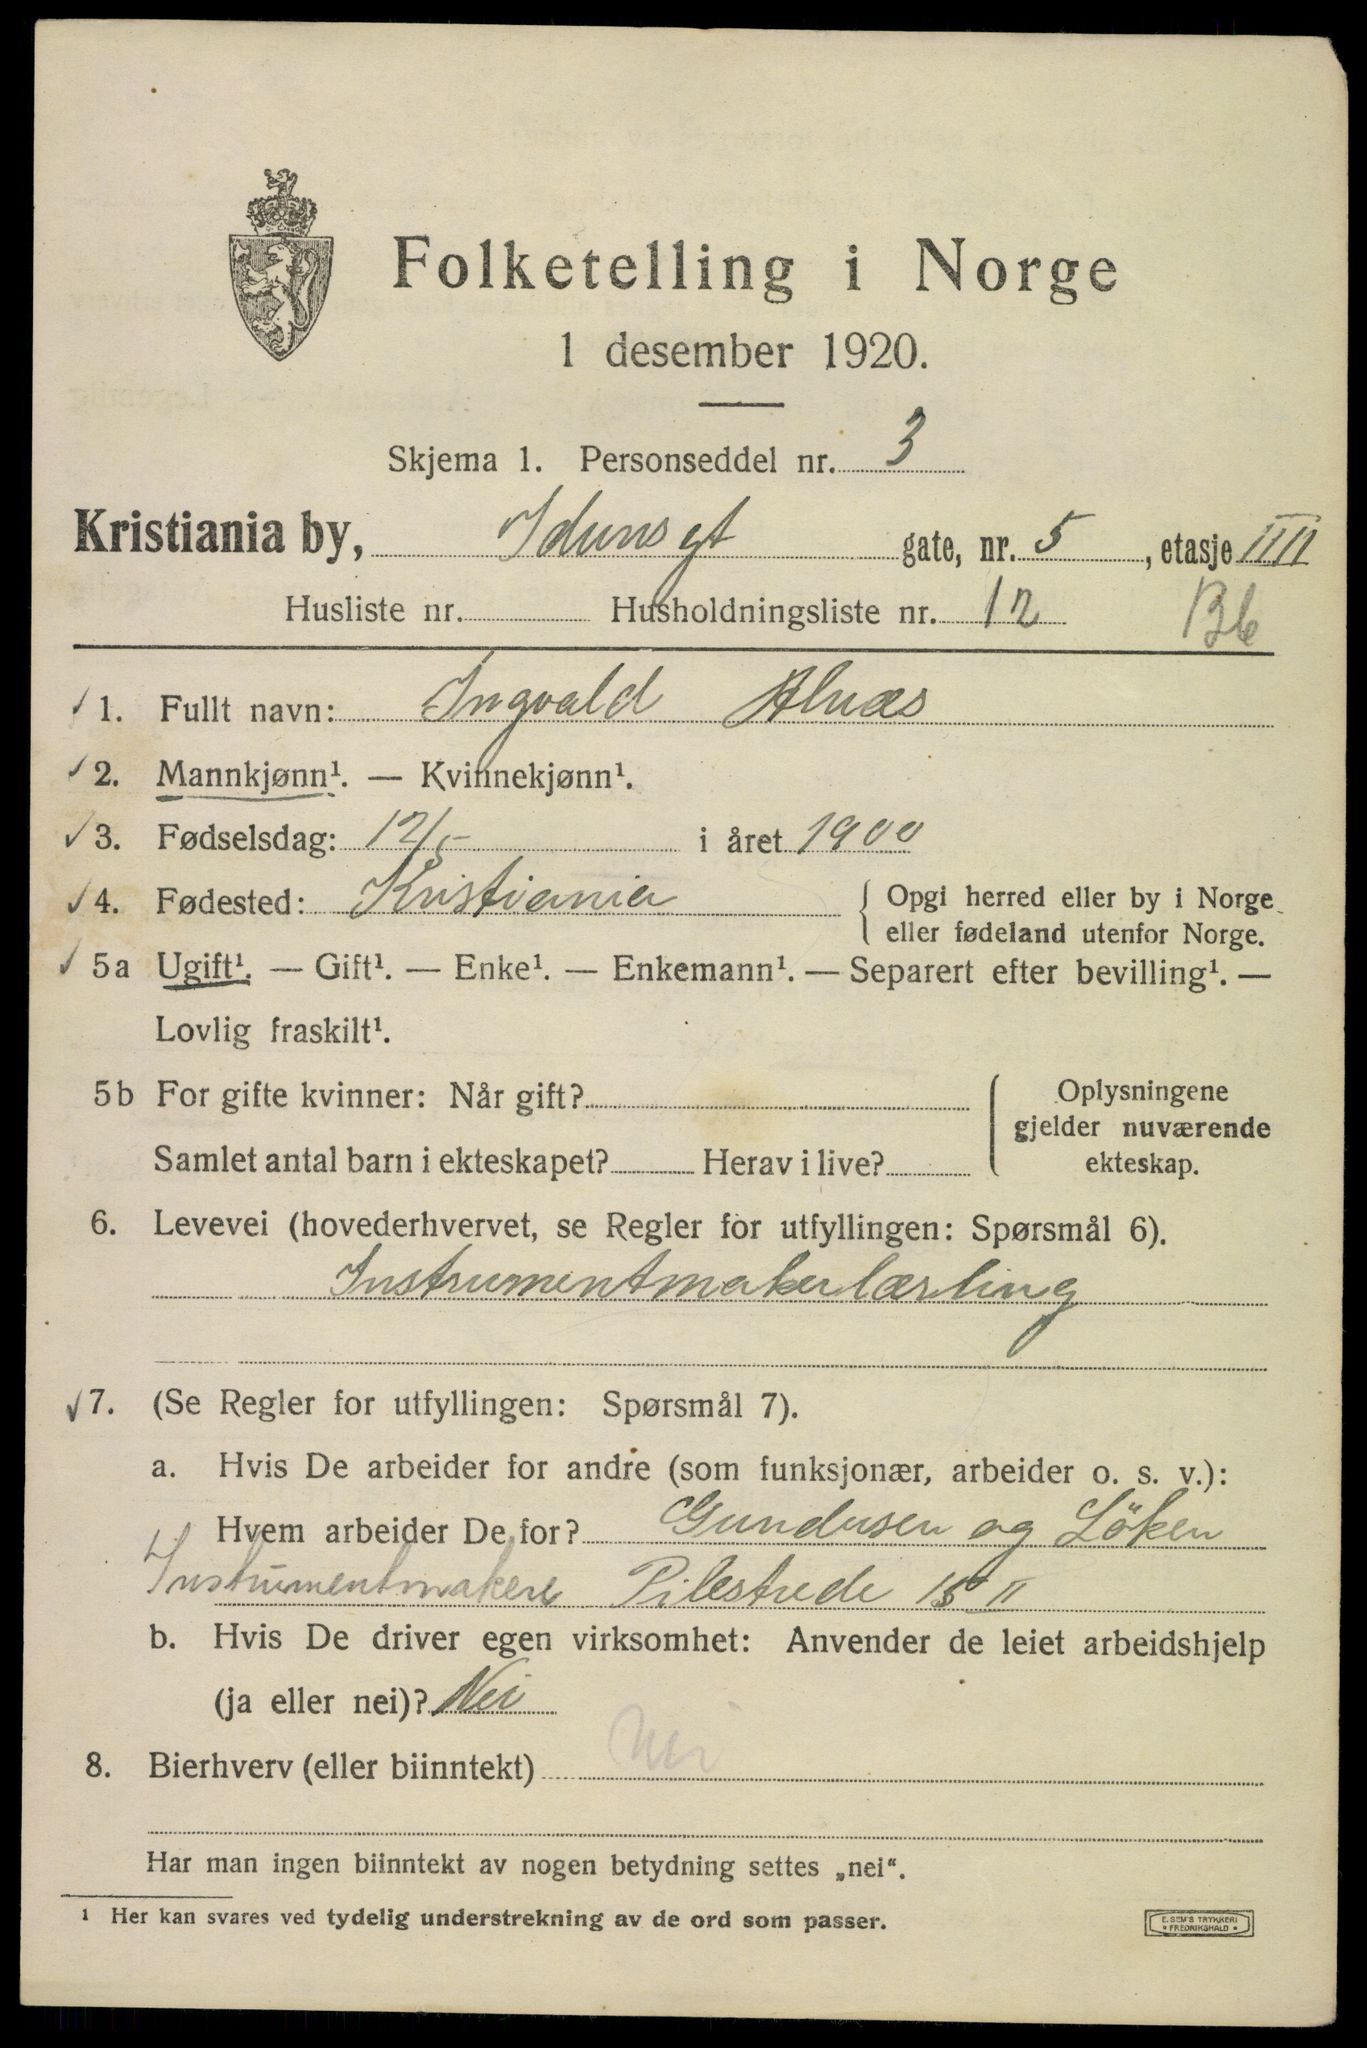 Folketelling i Norge
1 desember 1920.
Skjema 1. Personseddel nr. 3
Kristiania by, Idunsgt gate, nr. 5, etasje IIII
Husliste nr. Husholdningsliste nr. 12
1. Fullt navn: Ingvald Alnæs
2. Mannkjønn¹. — Kvinnekjønn¹.
3. Fødselsdag: 12/5 i året 1900
4. Fødested: Kristiania { Opgi herred eller by i Norge
eller fødeland utenfor Norge.
5a Ugift¹. — Gift¹. — Enke¹. — Enkemann¹. — Separert efter bevilling¹. —
Lovlig fraskilt¹.
5b For gifte kvinner: Når gift? { Oplysningene
gjelder nuværende
Samlet antal barn i ekteskapet? Herav i live? ekteskap.
6. Levevei (hovederhvervet, se Regler for utfyllingen: Spørsmål 6).
Instrumentmakerlærling
7. (Se Regler for utfyllingen: Spørsmål 7).
a. Hvis De arbeider for andre (som funksjonær, arbeider o. s. v.):
Hvem arbeider De for? Gundersen og Löken
Instrumentmakere Pilestrede 15 II
b. Hvis De driver egen virksomhet: Anvender de leiet arbeidshjelp
(ja eller nei)? Nei
8. Bierhverv (eller biinntekt) Nei
Har man ingen biinntekt av nogen betydning settes „nei“.
¹ Her kan svares ved tydelig understrekning av de ord som passer.
E. SEM'S TRYKKERI
* FREDRIKSHALD *